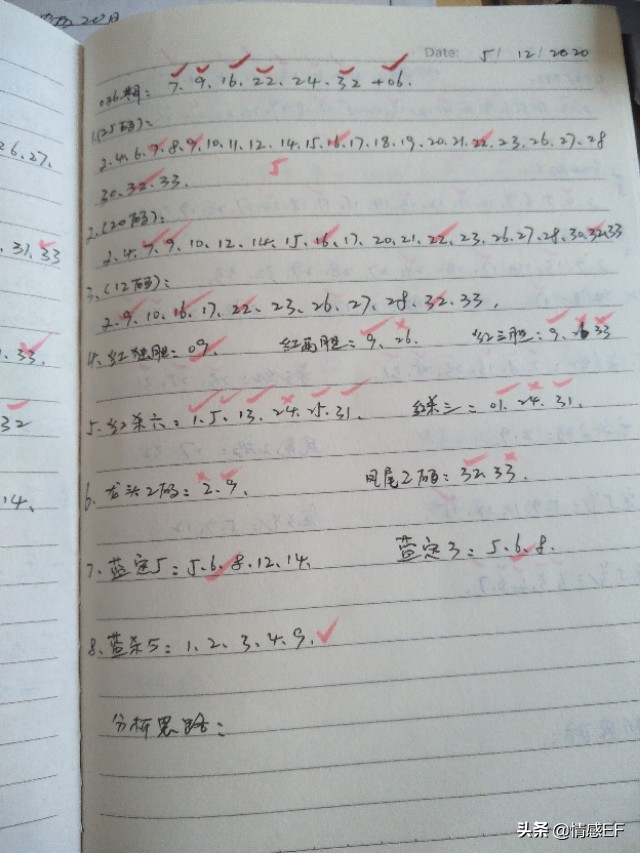 Date: 5/ 12/ 2020
036期: 7. 9. 16. 22. 24. 32 +06.
1.(25码):
2.4.6.7.8.9.10.11.12.14.15.16.17.18.19.20.21.22.23.26.27.28
30.32.33.
5
2.(20码):
2.4.7.9.10.12.14.15.16.17.20.21.22.23.26.27.28.30.32.33
3.(12码):
2.9.10.16.17.22.23.26.27.28.32.33.
4.红独胆: 09. 红两胆: 9.26. 红三胆: 9.26 33
5.红杀六: 1.5.13.24.25.31. 红杀三: 01.24.31.
6.龙头2码: 2.9. 凤尾2码: 32.33.
7.蓝定5: 5.6.8.12.14. 蓝定3: 5.6.8.
8.蓝杀5: 1.2.3.4.9.
分析思路:
26.27.
.31.33
.33.
32
.14.
头条 @情感EF